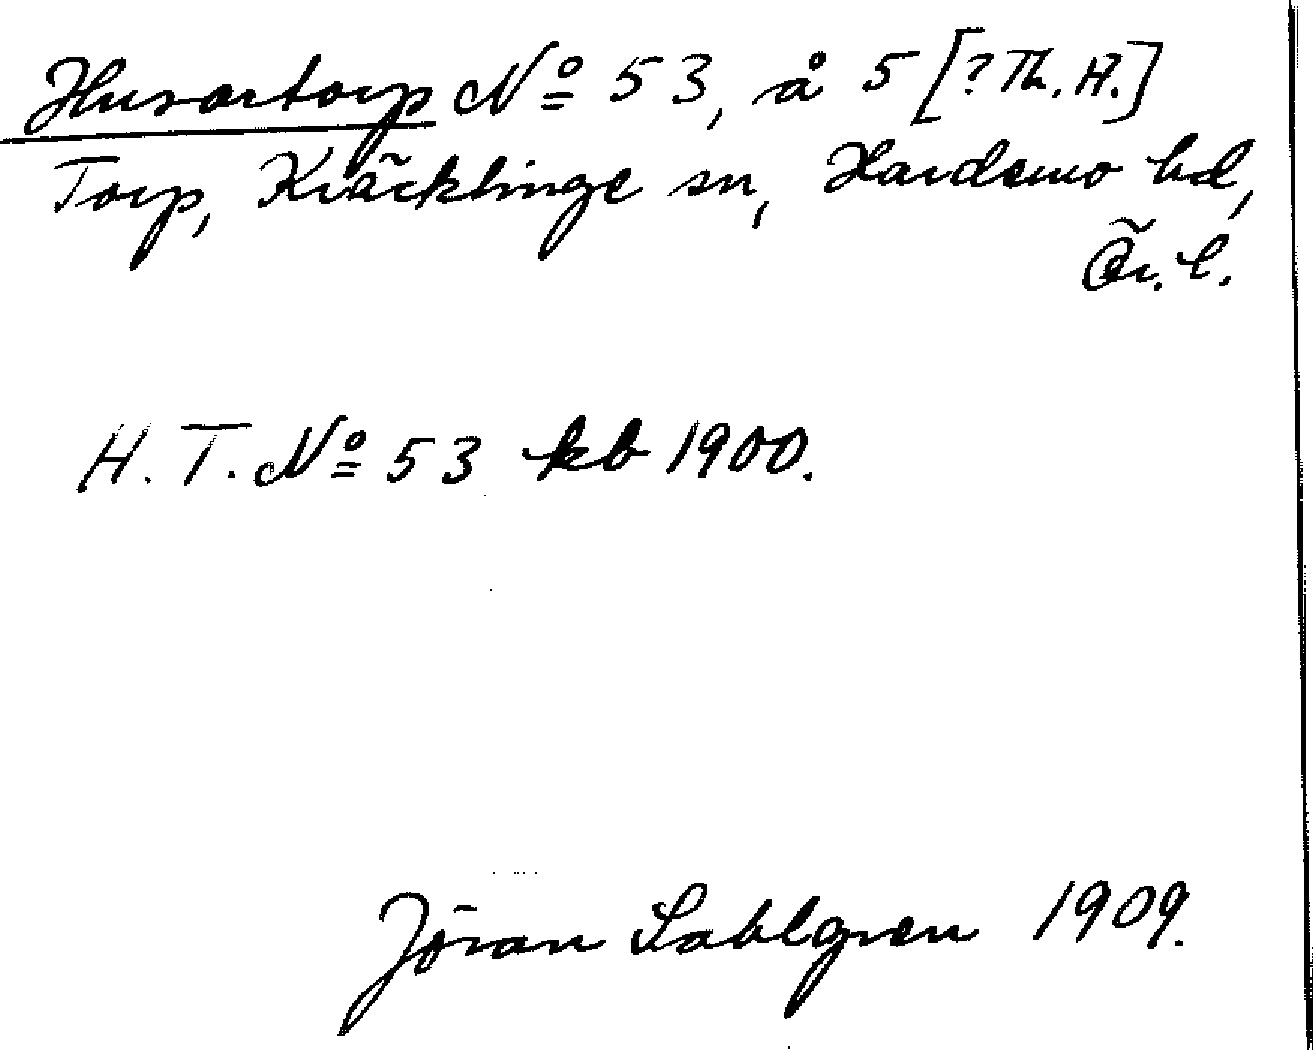 Husartorp Nº 53, å 5 [? Th. H.]
Torp, Kräcklinge sn, Hardemo hd,
Ör. l.
H. T. Nº 53 kb 1900.
Jöran Sahlgren 1909.